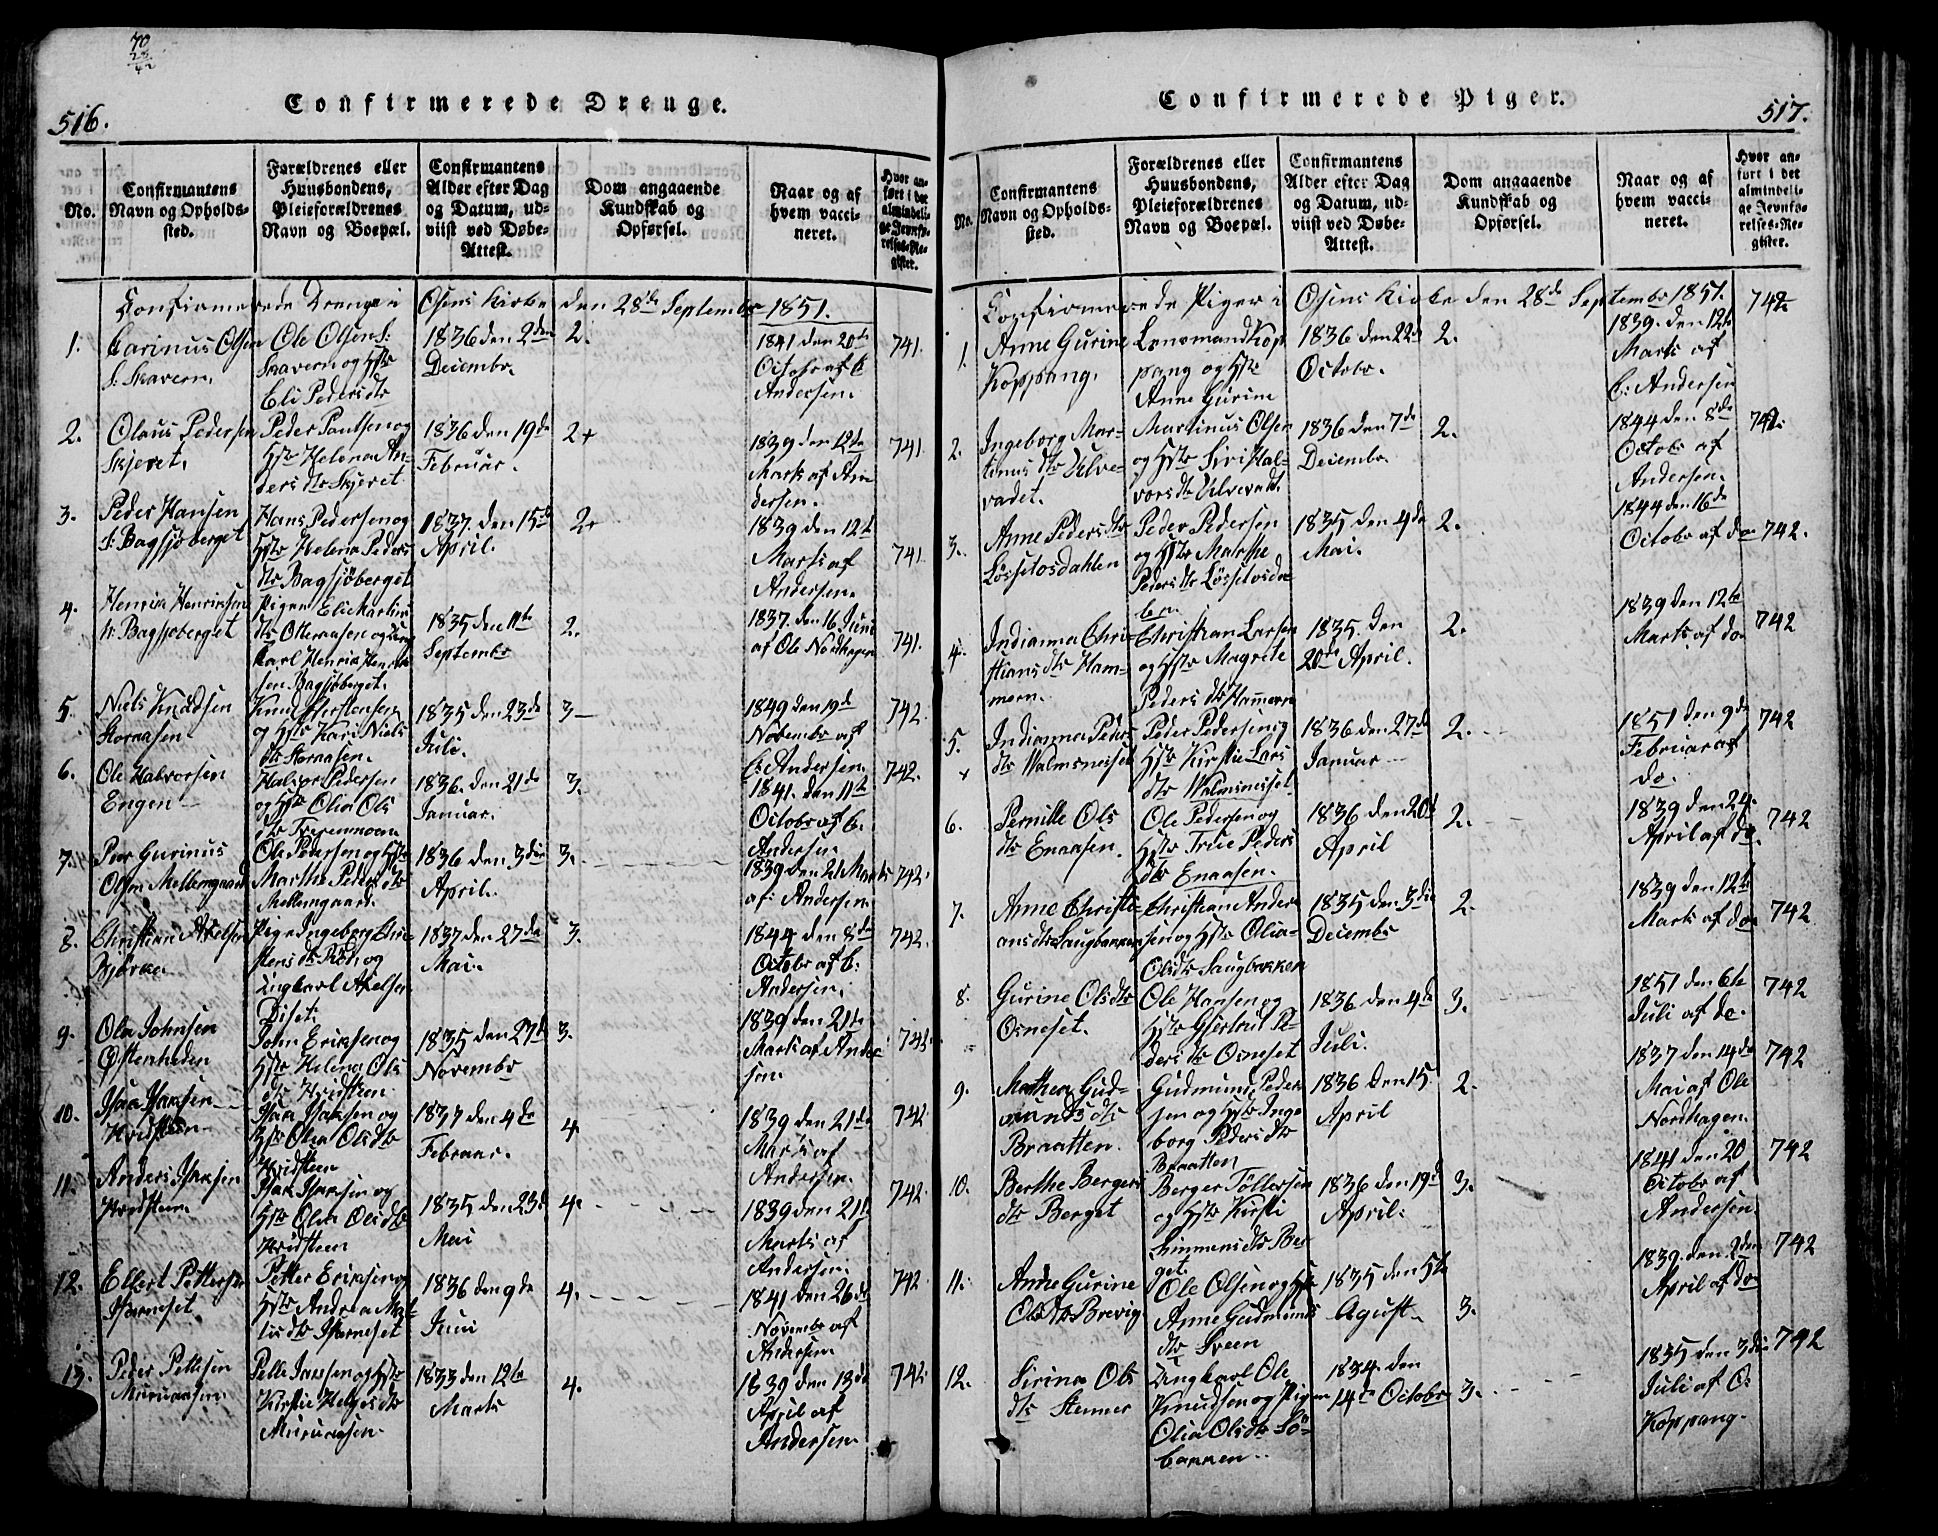 70
516.
Confirmerede Drenge.
No.
Confirmantens
Navn og Opholds-
sted.
Forældrenes eller
Huusbondens,
Pleieforældrenes
Navn og Boepæl.
Confirmantens
Alder efter Dag
og Datum, ud-
viist ved Døbe-
Attest.
Dom angaaende
Kundskab og
Opførsel.
Naar og af
hvem vacci-
neret.
Hvor an-
ført i det
almindeli-
ge Jevnfø-
relses-Re-
gister.
Confirmerede Drenge i Osens Kirke den 28de September 1851.
1.
Carinus Olsen
S: Skavern.
Ole Olsen S:
Skavern og Hstr
Eli Pedersdtr
1836 den 2den
Decembr.
2.
1841 den 20de
Octobr af C
Andersen.
741.
2.
Olaus Pedersen
Skjeret.
Peder Paulsen og
Hstr Helena An-
dersdtr Skjeret
1836 den 19de
Februar.
2+
1839 den 12te
Marts af An
dersen.
741
3.
Peder Hansen
S: Bagsjøberget
Hans Pedersen og
Hstr Helena Peders
dtr Bagsjøberget
1837. den 15de
April.
2+
1839 den 12te
Marts af
Andersen.
741
4.
Henrik Henriksen
N. Bagsjøberget
Pigen Eli Martins
dtr Otteraasen og Ung
Karl Henrik Henrik
sen Bagsjøberget.
1835 den 11te
Septembr
2.
1837. den 16 Juni
af Ole Nordhagen
741.
5.
Niels Knudsen
Storaasen
Knud Kerstensen
og Hstr Kari Niels
dtr Storaasen.
1835 den 23de
Juli.
3-
1849 den 19de
Novembr af
C: Andersen.
742.
6.
Ole Halvorsen
Engen
Halvor Pedersen
og Hstr Olia Ols
dtr
1836. den 21de
Januar.
3.
1841. den 11te
Octobr af C.
Andersen.
742.
7.
Peer Gurinus
Olsen Mellemgaard
Ole Pedersen og Hstr
Marthe Pedersdtr
Mellemgaard.
1836 den 3die
April.
3.
1839 den 21 Marts
af: Andersen.
742.
8.
Christian Axelsen
Bjørke
Pige Ingeborg Chri
stensdtr Røds og
Ungkarl Axelsen
Diset.
1837 den 27de
Mai.
3.
1844 den 8de
Octobr af C:
Andersen.
742.
9.
Ole Johnsen
Østenheden
John Eriksen og
Hstr Helena Ols
dtr Kvidsteen
1835 den 27de
Novembr
3.
1839 den 21de
Marts af Ander
sen.
742.
10.
Isak Isaksen
Kvidsteen
Isak Isaksen og
Hstr Olia Olsdtr
Kvidsteen
1837 den 4de
Februar.
4.
1839 den 21de
Marts af
Andersen.
742.
11.
Anders Isaksen
Kvidsteen
Isak Isaksen og
Hstr Olia Olsdtr
Kvidsteen
1835 den 23de
Mai
4.
1839 den 21de
Marts af
Andersen.
742.
12.
Ellert Pettersen
Isarneset.
Petter Eriksen og
Hstr Andrea Mat-
tisdtr Isarneset
1836 den 9de
Juni
4.
1841 den 26de
Novembr af
Andersen
742
13.
Peder Pellesen
Muruaasen.
Pelle Larssen og Hstr
Kirstie Helgesdtr
Muruaasen.
1833 den 12te
Marts
4.
1839 den 13de
April af
Andersen
742.
517.
Confirmerede Piger.
No.
Confirmantens
Navn og Opholds-
sted.
Forældrenes eller
Huusbondens,
Pleieforældrenes
Navn og Boepæl.
Confirmantens
Alder efter Dag
og Datum, ud-
viist ved Døbe-
Attest.
Dom angaaende
Kundskab og
Opførsel.
Naar og af
hvem vacci-
neret.
Hvor an-
ført i det
almindeli-
ge Jevnfø-
relses-Re-
gister.
Confirmerede Piger i Osens Kirke den 28de Septembr 1851.
1.
Anne Gurine
Koppang.
Lensmand Kop
pang og Hstr
Anne Gurine
1836 den 22de
Octobr.
2.
1839. den 12te
Marts af
C: Andersen
742
2.
Ingeborg Mar-
tinusdtr Ulve-
vadet.
Martinus Olsen
og Hstr Siri Hal-
vorsdtr Ulvevadt.
1836 den 7de
Decembr.
2.
1844 den 8de
Octobr af
Andersen.
742.
3.
Anne Pedersdtr
Løssetosdahlen
Peder Pedersen
og Hstr Marthe
Pedersdtr Løssetosda
len
1835 den 4de
Mai.
2.
1844 den 16de
Octobr af do
742.
4.
Indianna Chri-
stiansdtr Ham-
mern.
Christian Larsen
og Hstr Magrete
Pedersdtr Hammern
1835. den
20de April.
2.
1839 den 12te
Marts af do
742
5.
Indianna Peders
dtr Valmsneiset
Peder Pedersen og
Hstr Kirstie Lars
dtr Valmsneiset.
1836 den 27de
Januar
2.
1851 den 9de
Februar af
do.
742
6.
Pernille Ols
dtr Enaasen.
Ole Pedersen og
Hstr True Peders
dtr Enaasen.
1836 den 20de
April
2.
1839 den 24.
April af do.
742
7.
Anne Christi-
ansdtr Saugbakken
Christian Ander
sen og Hstr Olia
Olsdtr Saugbakken
1835 den 3die
Decembr
2.
1839 den 12te
Marts af do
742
8.
Gurine Olsdtr
Osneset.
Ole Hansen og
Hstr Gjertrud Pe-
dersdtr Osneset
1836 den 4de
Juli.
3.
1851 den 6te
Juli af do.
742
9.
Mathea Gud-
mundsdtr
Braatten.
Gudmund Peder
sen og Hstr Inge
borg Pedersdtr
Braatten
1836 den 15.
April
2.
1837 den 14de
Mai af Ole
Nordhagen.
742
10.
Berthe Bergers
dtr Berget
Berger Tøllersen
og Hstr Kirsti
Simmensdtr Ber
get.
1836 den 19de
April.
3.
1841 den 20
Octobr af
Andersen.
742
11.
Anne Gurine
Olsdtr Brevig
Ole Olsen og Hstr
Anne Gudmunds
dtr Sveen
1835 den 5te
Agust
3.
1839. den 2den
April af do
742
12.
Sirina Ols
dtr Stenner
Ungkarl Ole
Knudsen og Pigen
Olia Olsdtr Sö-
bakken
1834. den
14de Octobr
3.
1835 den 3die
Juli af O:
Koppang.
742